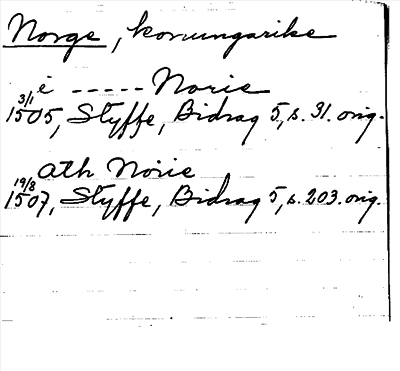 Norge, konungarike
i ----- Norie
3/1 1505, Styffe, Bidrag 5, s. 31. orig.
ath Norie
19/8 1507, Styffe, Bidrag 5, s. 203. orig.